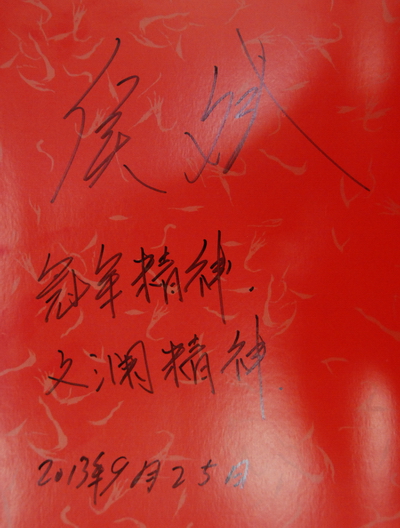 侯斌
冠军精神.
文澜精神.
2013年9月25日